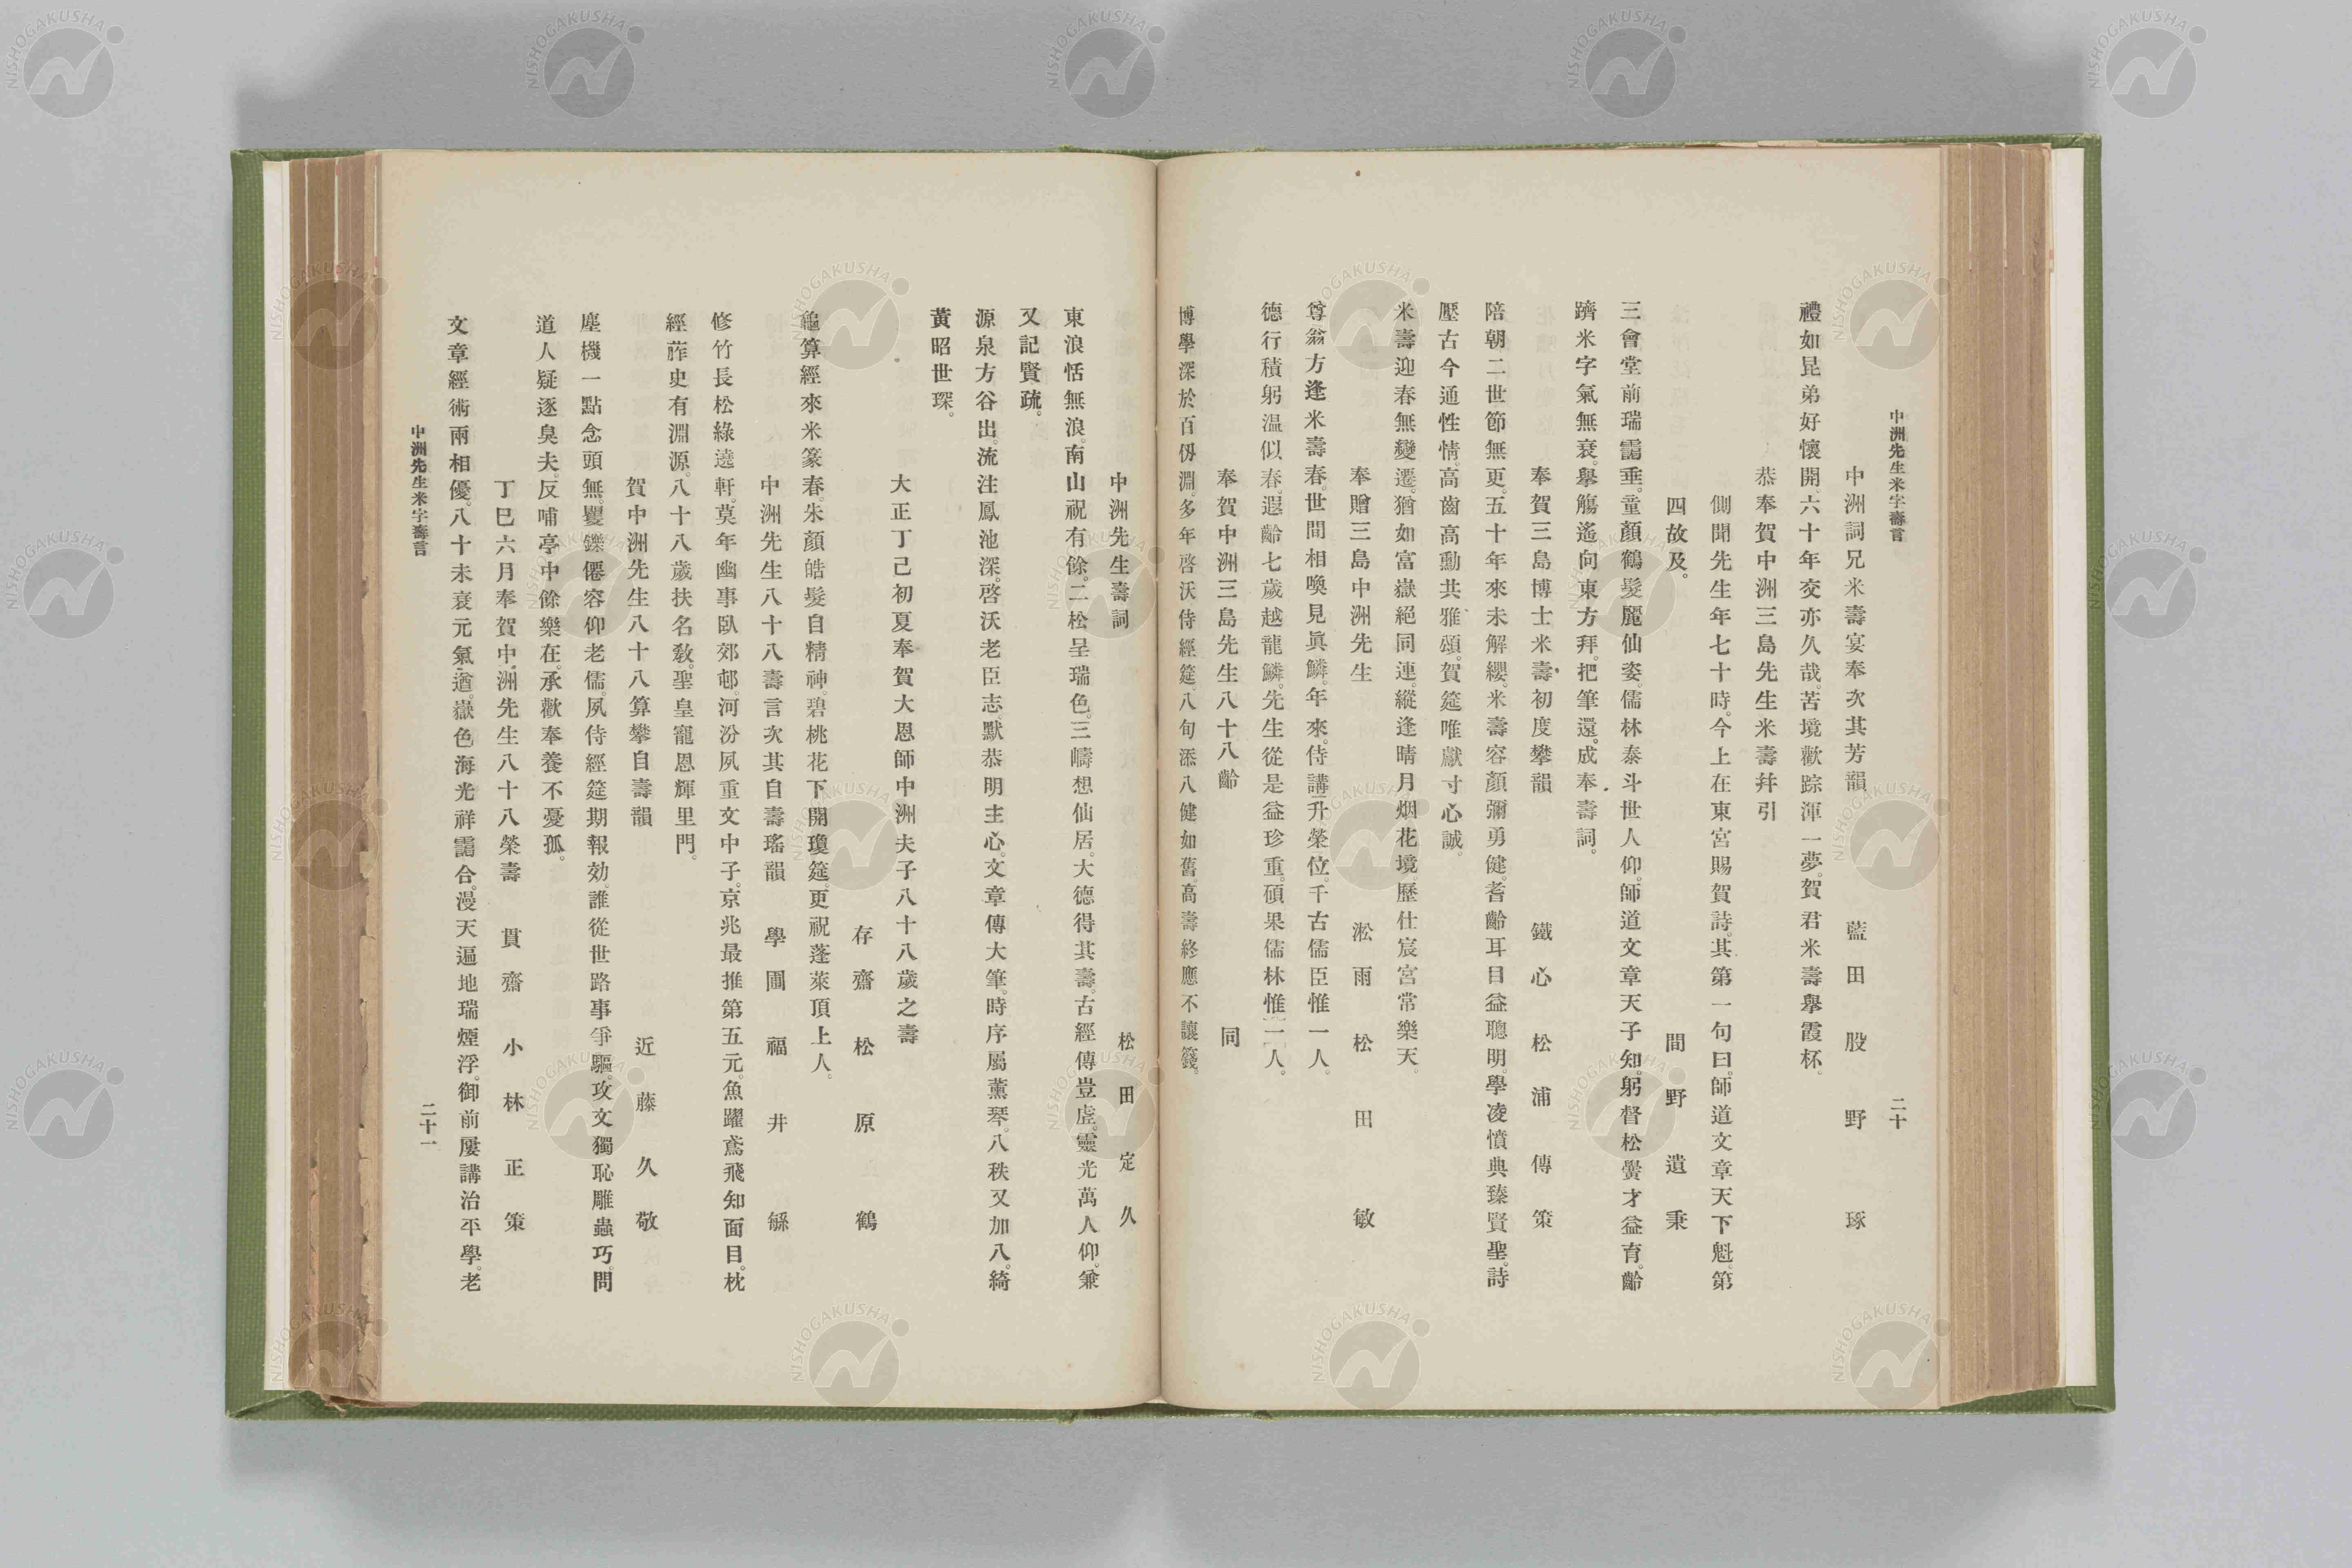 中洲先生米字壽言
二十
中洲詞兄米壽宴奉次其芳韻 藍田股野琢
禮如昆弟好懷開。六十年交亦久哉。苦境歡踪渾一夢。賀君米壽擧霞杯。
恭奉賀中洲三島先生米壽幷引
側聞先生年七十時。今上在東宮賜賀詩。其第一句曰。師道文章天下魁。第
四故及。 間野遺秉
三會堂前瑞靄垂。童顏鶴髮麗仙姿。儒林泰斗世人仰。師道文章天子知。躬督松黌才益育。齡
躋米字氣無衰。擧觴遙向東方拜。把筆還成奉壽詞。
奉賀三島博士米壽初度攀韻 鐵心松浦傳策
陪朝二世節無更。五十年來未解纓。米壽容顏彌勇健。耆齡耳目益聰明。學凌憤典臻賢聖。詩
壓古今通性情。高齒高勳共雅頌。賀筵唯獻寸心誠。
米壽迎春無變遷。猶如富嶽絕同連。縱逢晴月烟花境。歷仕宸宮常樂天。
奉贈三島中洲先生 淞雨松田敏
尊翁方逢米壽春。世間相喚見眞鱗。年來侍講升榮位。千古儒臣惟一人。
德行積躬溫似春。遐齡七歲越龍鱗。先生從是益珍重。碩果儒林惟一人。
奉賀中洲三島先生八十八齡 同
博學深於百仭淵。多年啓沃侍經筵。八旬添八健如舊。高壽終應不讓籛。
中洲先生壽詞 松田定久
東浪恬無浪。南山祝有餘。二松呈瑞色。三疇想仙居。大德得其壽。古經傳豈虛。靈光萬人仰。兼
又記賢疏。
源泉方谷出。流注鳳池深。啓沃老臣志。默恭明主心。文章傳大筆。時序屬薰琴。八秩又加八。綺
黃昭世琛。
大正丁己初夏奉賀大恩師中洲夫子八十八歲之壽
存齋松原鶴
龜算經來米篆春。朱顏皓髮自精神。碧桃花下開瓊筵。更祝蓬萊頂上人。
中洲先生八十八壽言次其自壽瑤韻 學圃福井繇
修竹長松綠遶軒。莫年幽事臥郊邨。河汾夙重文中子。京兆最推第五元。魚躍鳶飛知面目。枕
經葄史有淵源。八十八歲扶名敎。聖皇寵恩輝里門。
賀中洲先生八十八算攀自壽韻 近藤久敬
塵機一點念頭無。矍鑠僊容仰老儒。夙侍經筵期報効。誰從世路事爭驅。攻文獨恥雕蟲巧。問
道人疑逐臭夫。反哺亭中餘樂在。承歡奉養不憂孤。
丁巳六月奉賀中洲先生八十八榮壽 貫齋小林正策
文章經術兩相優。八十未衰元氣遒。嶽色海光祥靄合。漫天逼地瑞煙浮。御前屢講治平學。老
中洲先生米字壽言
二十一